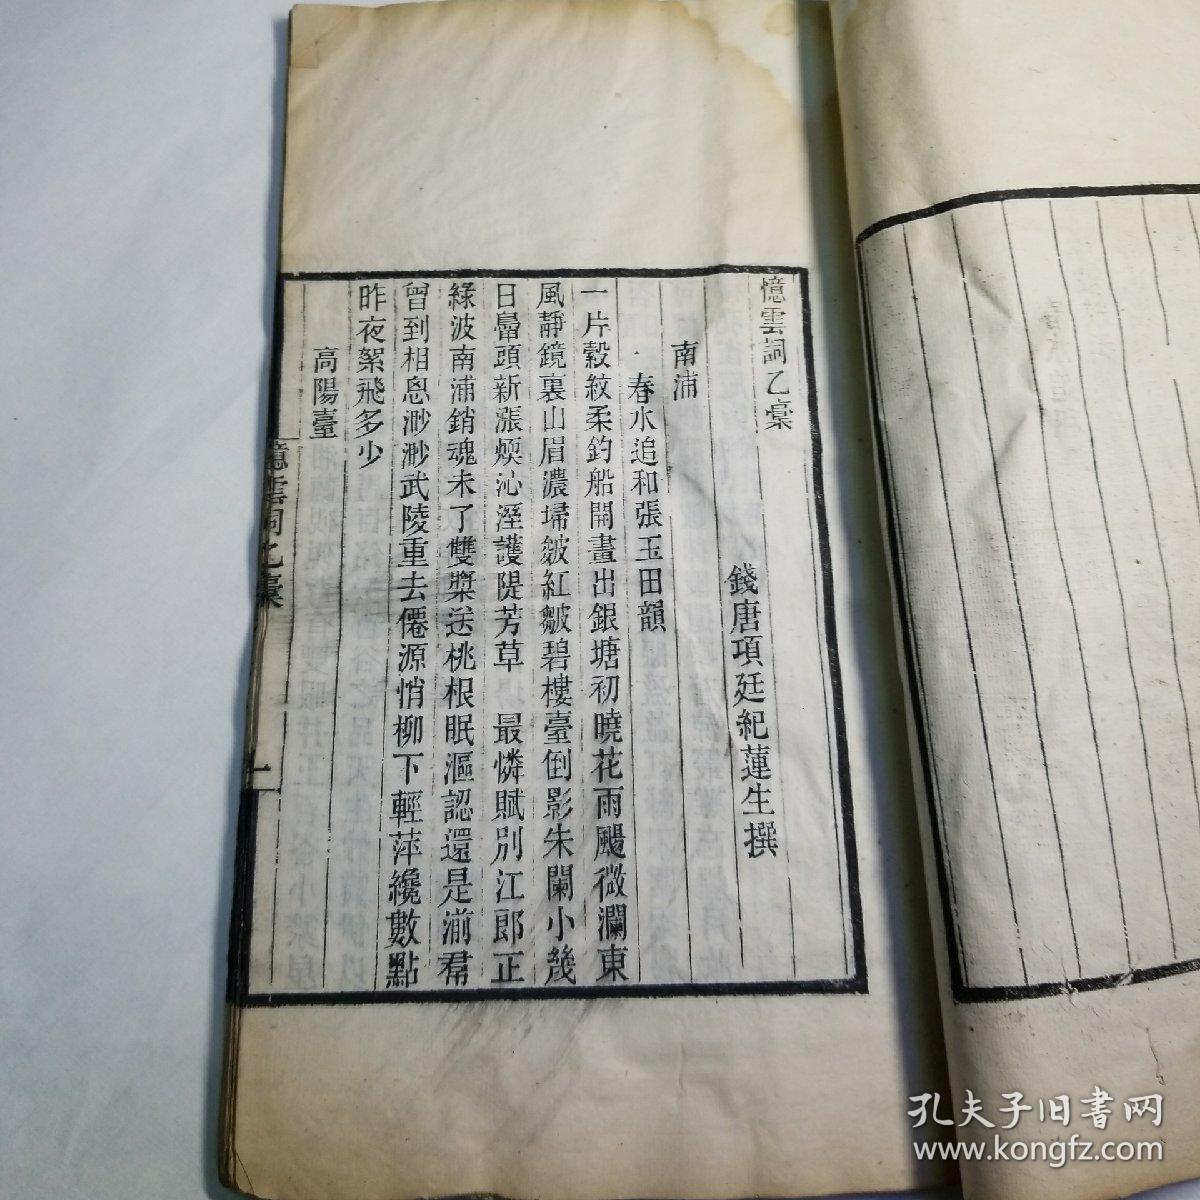 憶雲詞乙稾
錢唐項廷紀蓮生撰
南浦
春水追和張玉田韻
一片縠紋柔釣船開畫出銀塘初曉花雨颺微瀾東
風靜鏡裏山眉濃埽皴紅皺碧樓臺倒影朱闌小幾
日鼂頭新漲煗沁溼護隄芳草　最憐賦別江郎正
綠波南浦銷魂未了雙槳送桃根眠漚認還是湔帬
曾到相息渺渺武陵重去僊源悄柳下輕萍纔數點
昨夜絮飛多少
高陽臺
憶雲詞乙稾
一
孔夫子旧书网
www.kongfz.com